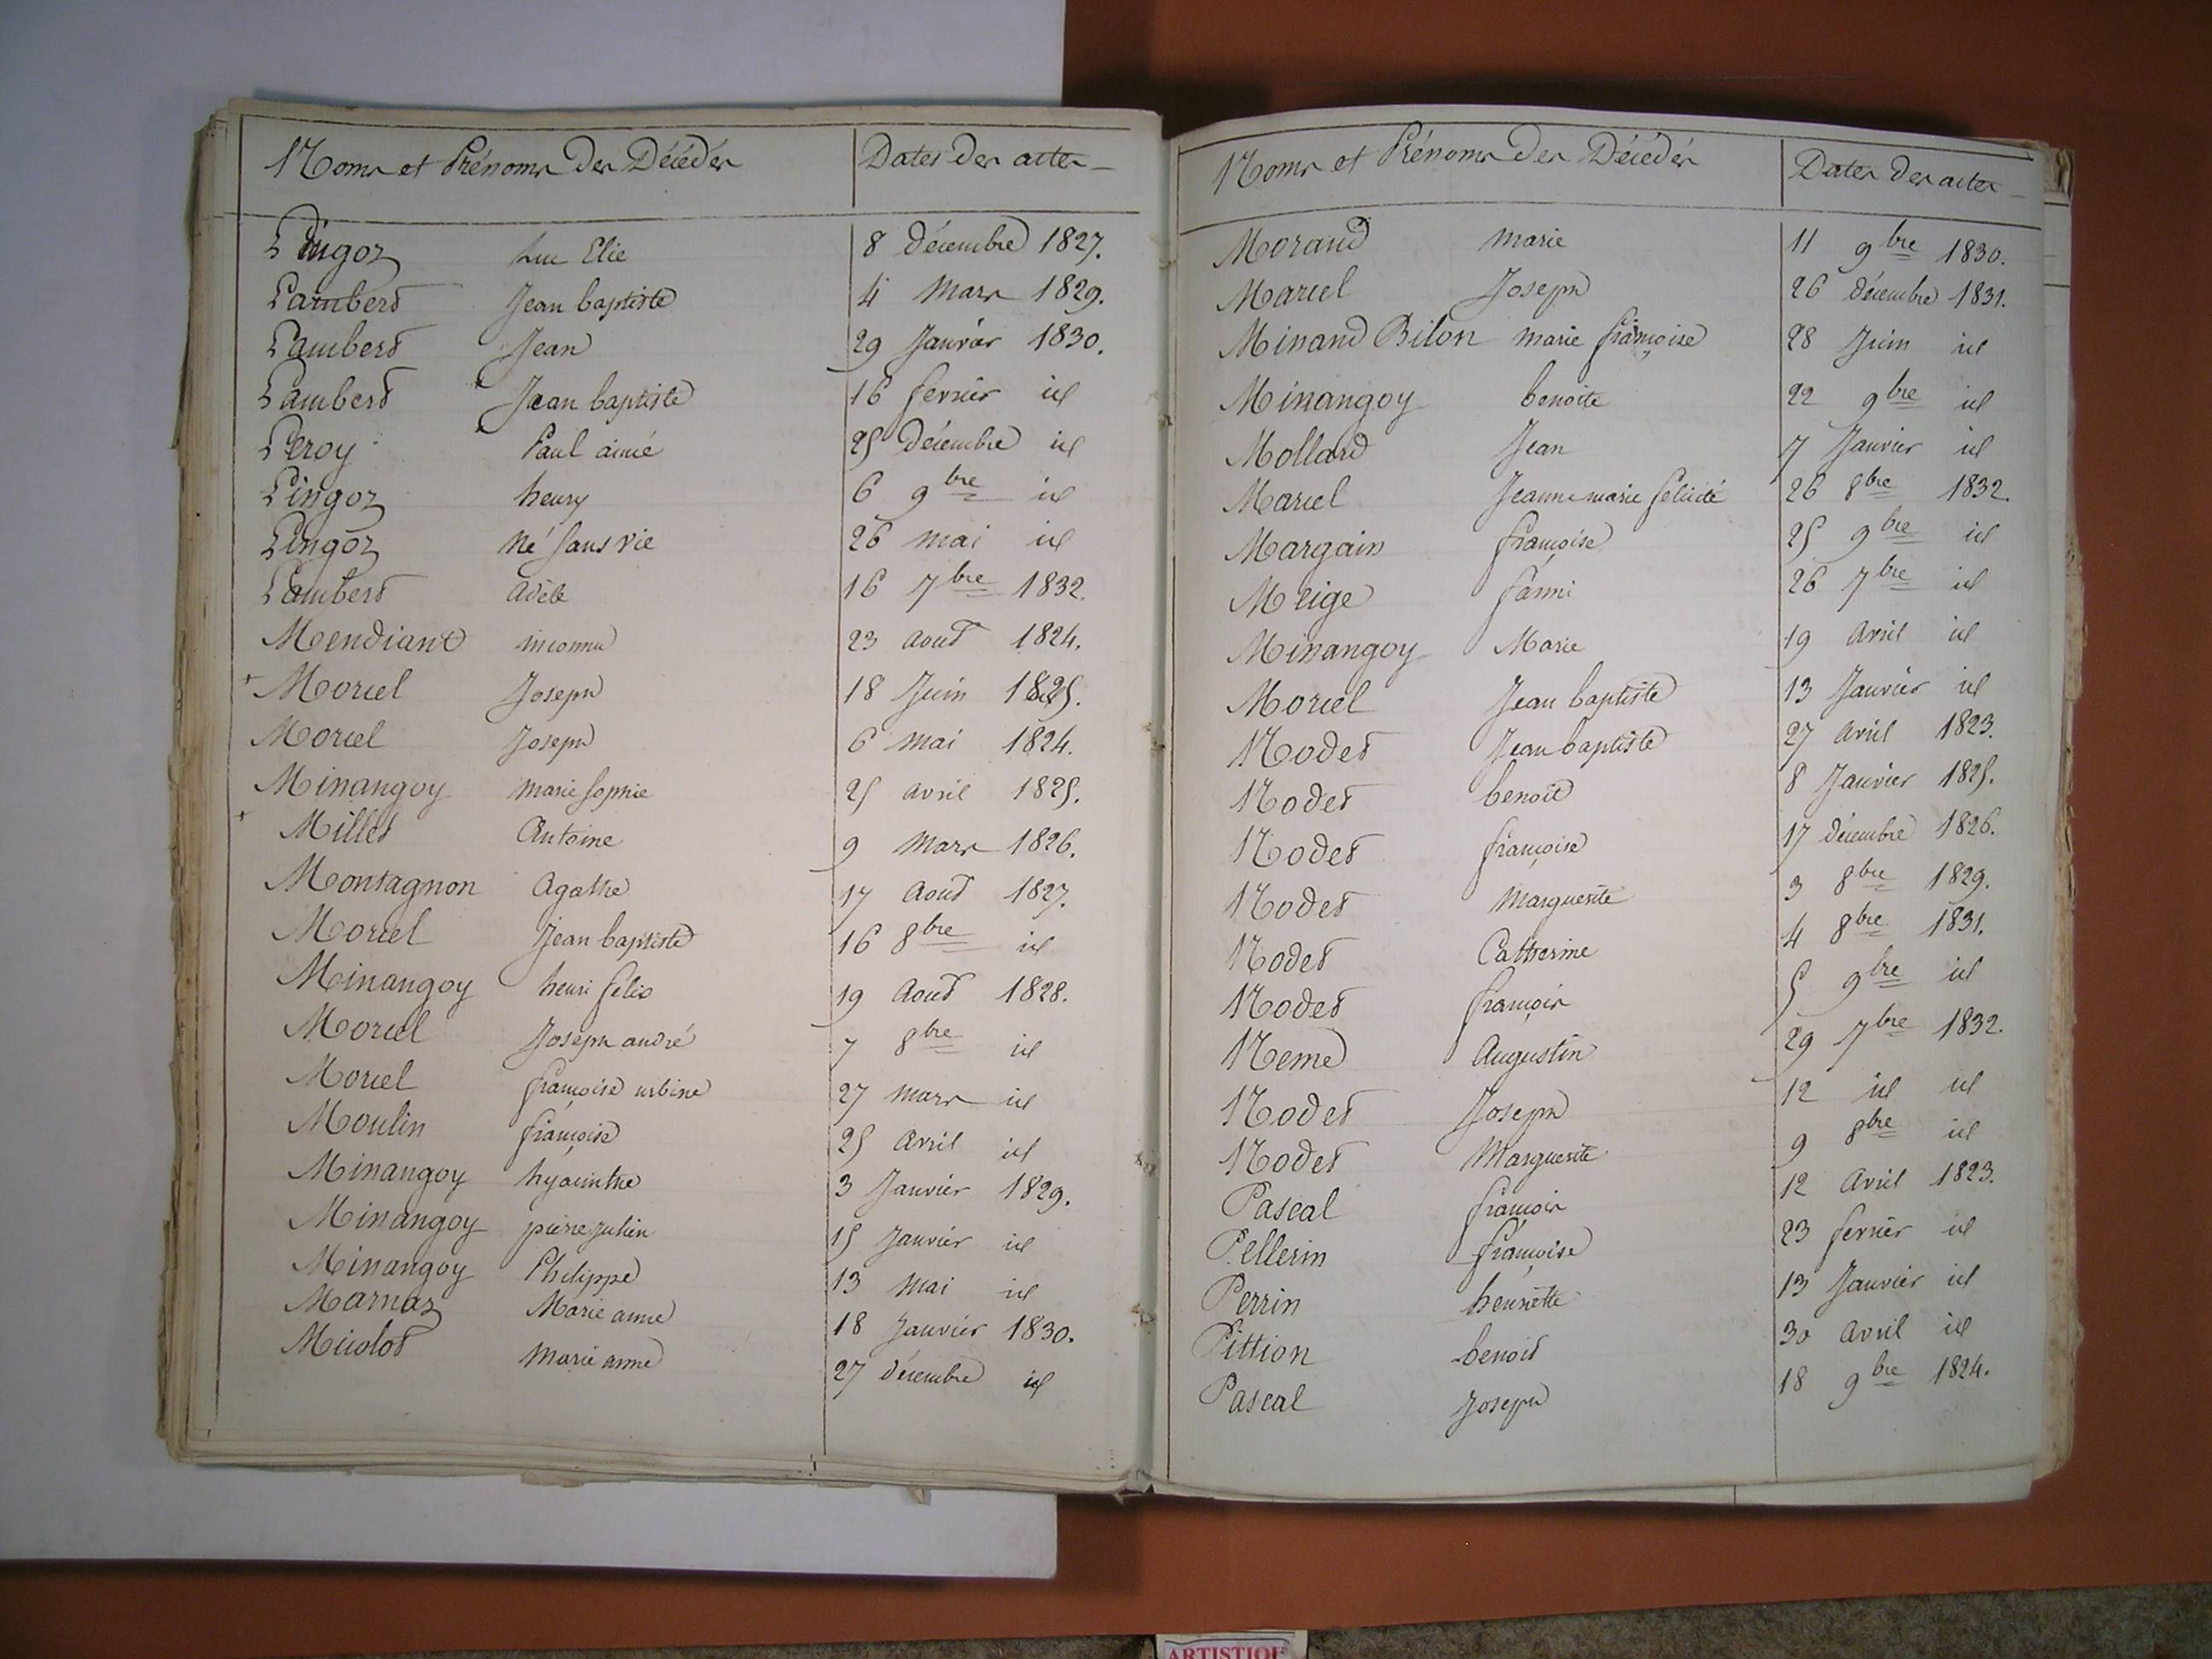 Noms et Prénoms des Décédés Dates des actes
Lingoz Luc Elie 8 Décembre 1827.
Lambert Jean baptiste 4 Mars 1829.
Lambert Jean 29 Janvier 1830.
Lambert Jean baptiste 16 fevrier id
Leroy Paul aimé 25 Décembre id
Lingoz henry 6 9bre id
Lingoz Né sans vie 26 mai id
Lambert adèle 16 7bre 1832.
Mendiant inconnu 23 aout 1824.
+ Moriel Joseph 18 Juin 1825.
Moriel Joseph 6 Mai 1824.
Minangoy Marie Sophie 25 avril 1825.
+ Millet Antoine 9 Mars 1826.
Montagnon Agathe 17 Aout 1827.
Moriel Jean baptiste 16 8bre id
Minangoy henri felix 19 Aout 1828.
Moriel Joseph andré 7 8bre id
Moriel françoise urbine 27 mars id
Moulin françoise 25 Avril id
Minangoy hyacinthe 3 Janvier 1829.
Minangoy pierre julien 15 Janvier id
Minangoy Philippe 13 Mai id
Marnaz Marie anne 18 Janvier 1830.
Miciolot Marie anne 27 décembre id
Noms et Prénoms des Décédés Dates des actes
Morand Marie 11 9bre 1830.
Mariel Joseph 26 décembre 1831.
Minand Bilon marie françoise 28 Juin id
Minangoy benoite 22 9bre id
Mollard Jean 7 Janvier id
Mariel Jeanne marie felicité 26 8bre 1832.
Margain françoise 25 9bre id
Meige fanni 26 7bre id
Minangoy Marie 19 Avril id
Moriel Jean baptiste 13 Janvier id
Nodet Jean baptiste 27 Avril 1823.
Nodet benoit 8 Janvier 1825.
Nodet françoise 17 décembre 1826.
Nodet Marguerite 3 8bre 1829.
Nodet Catherine 4 8bre 1831.
Nodet françois 5 9bre id
Neme Augustin 29 7bre 1832.
Nodet Joseph 12 id id
Nodet Marguerite 9 8bre id
Pascal françois 12 Avril 1823.
Pellerin françoise 23 fevrier id
Perrin henriette 13 Janvier id
Pittion benoit 30 avril id
Pascal Joseph 18 9bre 1824.